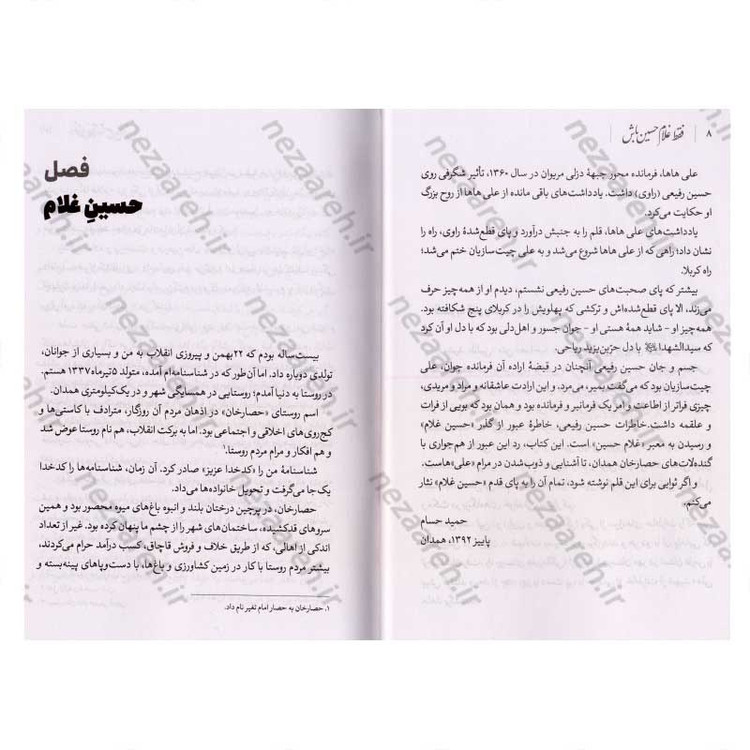 ۸ | فقط غلام حسین باش
علی هاها، فرمانده محور جبههٔ دزلی مریوان در سال ۱۳۶۰، تأثیر شگرفی روی
حسین رفیعی (راوی) داشت. یادداشت‌های باقی مانده از علی هاها از روح بزرگ
او حکایت می‌کرد.
یادداشت‌های علی هاها، قلم را به جنبش درآورد و پای قطع‌شدهٔ راوی، راه را
نشان داد؛ راهی که از علی هاها شروع می‌شد و به علی چیت‌سازیان ختم می‌شد؛
راه کربلا.
بیشتر که پای صحبت‌های حسین رفیعی نشستم، دیدم او از همه‌چیز حرف
می‌زند، الا پای قطع‌شده‌اش و ترکشی که پهلویش را در کربلای پنج شکافته بود.
همه‌چیز او - شاید همهٔ هستی او - جوان جسور و اهل‌دلی بود که با دل او آن کرد
که سیدالشهدا با دل حرّبن‌یزید ریاحی.
جسم و جان حسین رفیعی آنچنان در قبضهٔ ارادهٔ آن فرمانده جوان، علی
چیت‌سازیان بود که می‌گفت بمیر، می‌مرد. و این ارادت عاشقانه و مراد و مریدی،
چیزی فراتر از اطاعت و امر یک فرمانبر و فرمانده بود و همان بود که بویی از فرات
و علقمه داشت. خاطرات حسین رفیعی، خاطرهٔ عبور از گذر «حسین غلام»
و رسیدن به معبر «غلام حسین» است. این کتاب، رد این عبور از هم‌جواری با
گنده‌لات‌های حصارخان همدان، تا آشنایی و ذوب‌شدن در مرام «علی»هاست.
و اگر ثوابی برای این قلم نوشته شود، تمام آن را به پای قدم «حسین غلام» نثار
می‌کنم.
حمید حسام
پاییز ۱۳۹۲، همدان
فصل
حسینِ غلام
بیست‌ساله بودم که ۲۲بهمن و پیروزی انقلاب به من و بسیاری از جوانان،
تولدی دوباره داد. اما آن‌طور که در شناسنامه‌ام آمده، متولد ۵تیرماه ۱۳۳۷ هستم.
در روستا به دنیا آمدم؛ روستایی در همسایگی شهر و در یک‌کیلومتری همدان.
اسم روستای «حصارخان» در اذهان مردم آن روزگار، مترادف با کاستی‌ها و
کج‌روی‌های اخلاقی و اجتماعی بود. اما به برکت انقلاب، هم نام روستا عوض شد
و هم افکار و مرام مردم روستا.۱
شناسنامهٔ من را «کدخدا عزیز» صادر کرد. آن زمان، شناسنامه‌ها را کدخدا
یک‌جا می‌گرفت و تحویل خانواده‌ها می‌داد.
حصارخان، در پرچین درختان بلند و انبوه باغ‌های میوه محصور بود و همین
سروهای قدکشیده، ساختمان‌های شهر را از چشم ما پنهان کرده بود. غیر از تعداد
اندکی از اهالی، که از طریق خلاف و فروش قاچاق، کسب درآمد حرام می‌کردند،
بیشتر مردم روستا با کار در زمین کشاورزی و باغ‌ها، با دست‌وپاهای پینه‌بسته و
۱. حصارخان به حصار امام تغییر نام داد.
nezaareh.ir